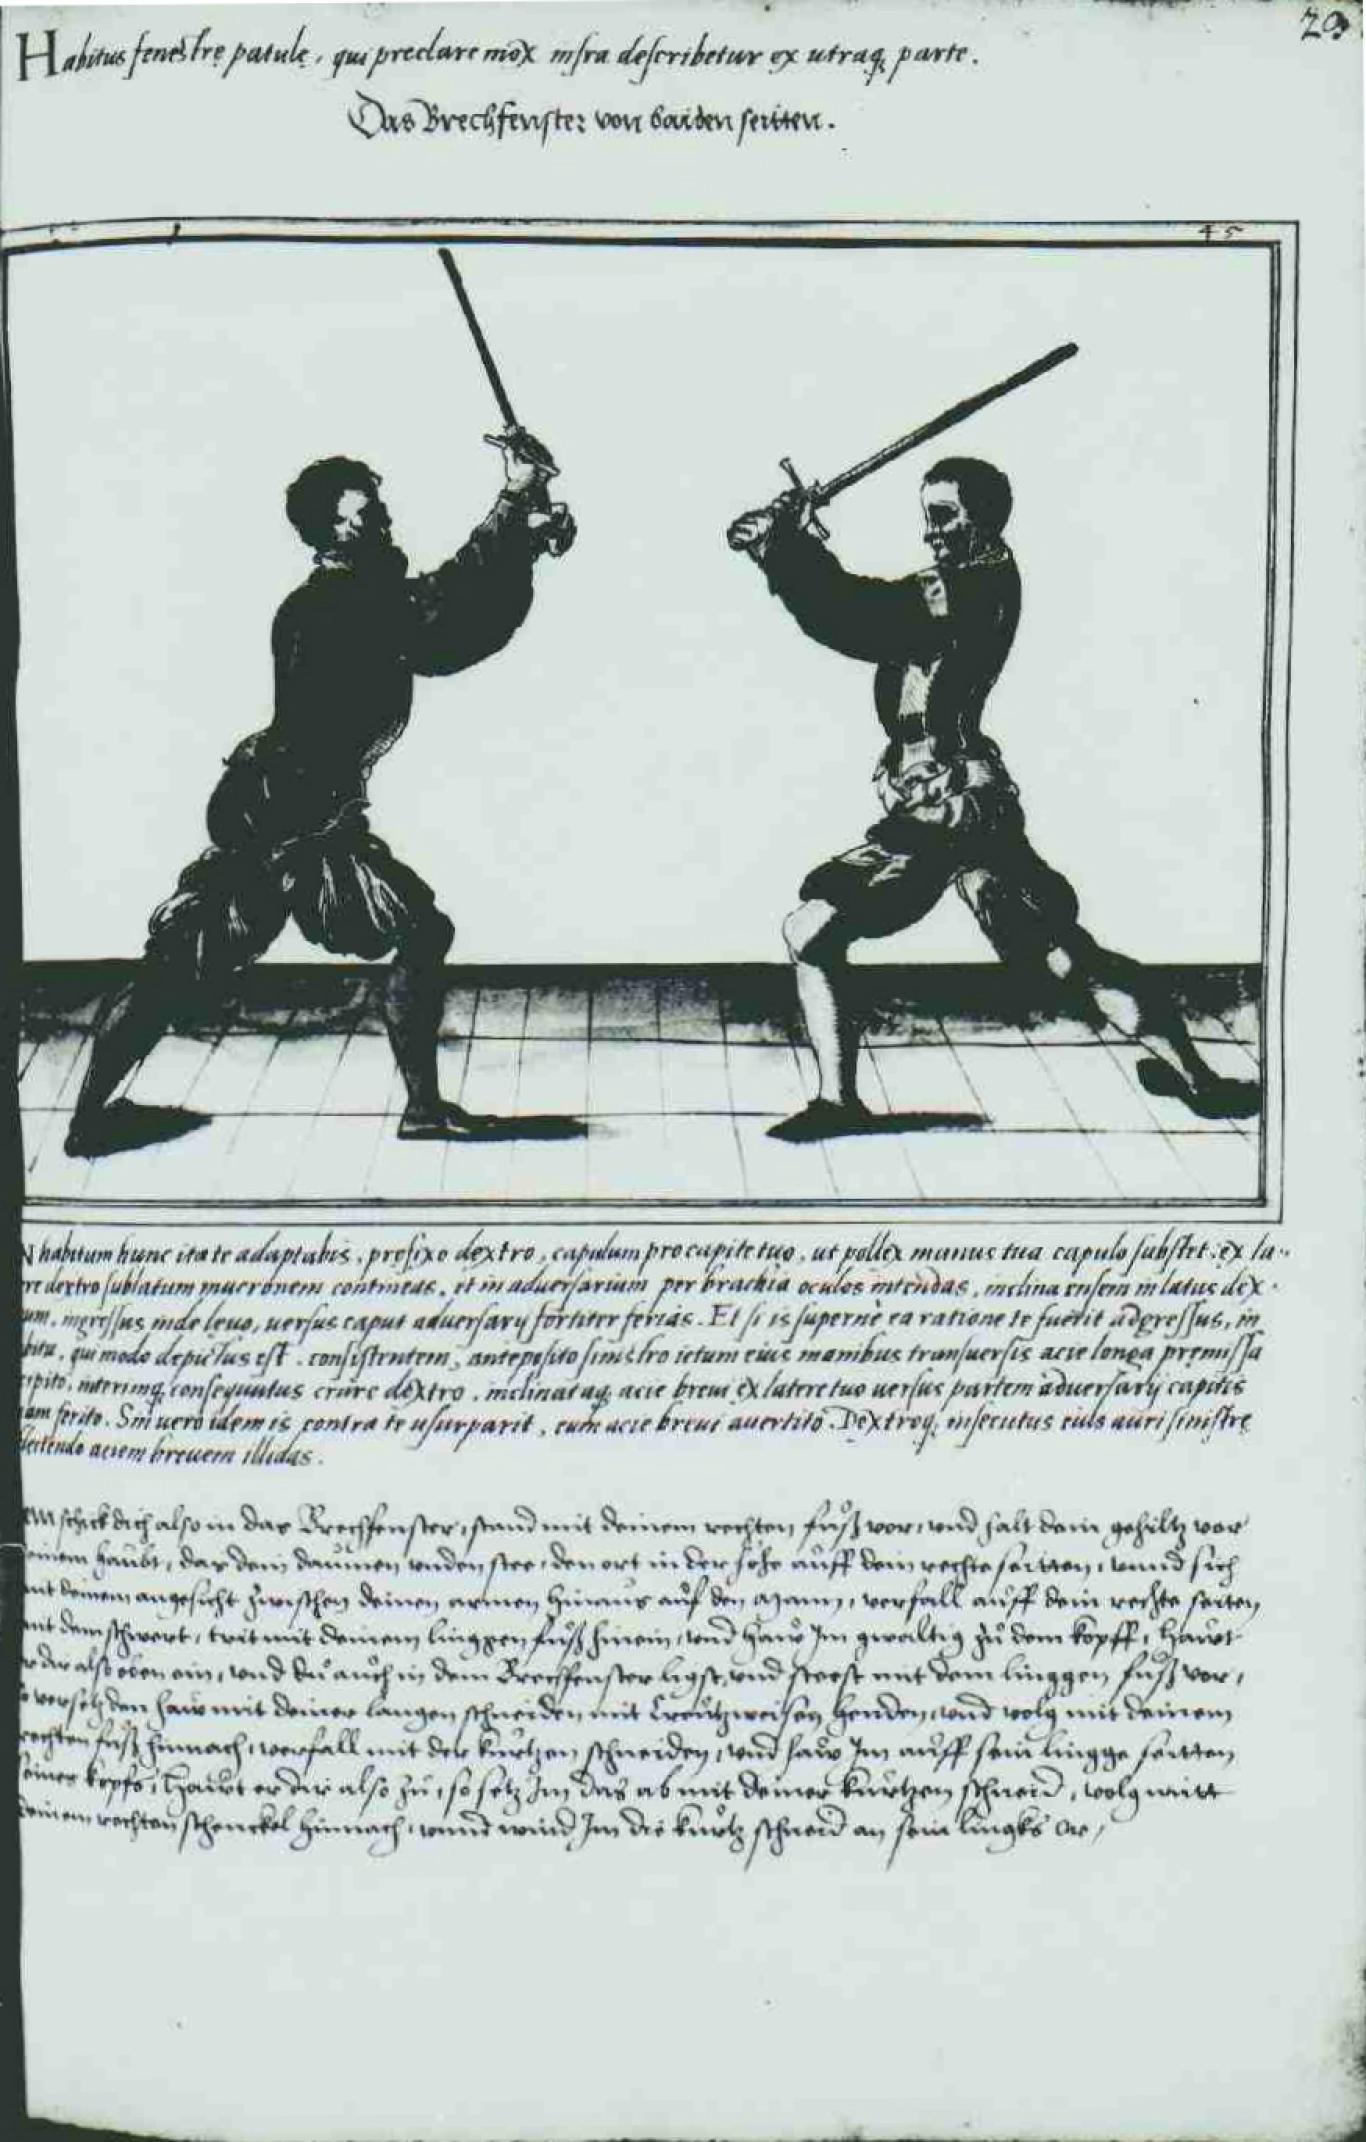 29
Habitus fenestrę patulę, qui preclare mox infra describetur ex utraq; parte.
Das Brechfenster von baiden seitten.
45
N habitum hunc ita te adaptabis. prefixo dextro, capulum pro capite tuo, ut pollex manus tuae capulo substet. ex la-
re dextro sublatum mucronem contineas, et in aduersarium per brachia oculos intendas, inclina ensem in latus dex-
um, ingressus inde leuo, uersus caput aduersarij fortiter ferias. Et si is supernè ea ratione te fuerit adgressus, in
bitu, qui modo depictus est, consistentem, anteposito sinistro ictum eius manibus transuersis acie longa premissa
cipito, interimq; consequutus crure dextro, inclinataq; acie breui ex latere tuo uersus partem aduersarij capitis
am ferito. Sin uero idem is contra te usurparit, eum acie breui auertito. Dextroq; insecutus eius auri sinistrę
lectendo aciem breuem illidas.
em schick dich also in das Brechfenster, stand mit deinem rechten fuß vor, vnd halt dein gehiltz vor
einem haubt, das dein daumen vnden stee, den ort in der höhe auff dein rechte seitten, vnnd sich
mit deinem angesicht zwischen deinen armen hinaus auf den Mann, verfall auff dein rechte seiten
mit dem schwert, trit mit deinem linggen fuß hinein, vnd haw Im gwaltig zu dem kopff, hawt
er dir also oben ein, vnd du auch in dem Brechfenster ligst, vnd steest mit dem linggen fuß vor,
so versetz den haw mit deiner langen schneiden mit Creutzweisen henden, vnd volg mit deinem
rechten fuß hinnach, verfall mit der kurtzen schneiden, vnd haw Im auff sein lingge seitten
seines kopffs, hawt er dir also zu, so setz Im das ab mit deiner kurtzen schneid, volg mit
deinem rechten schenckel hinnach, vnnd wind Im die kurtz schneid an sein lingks Ore,